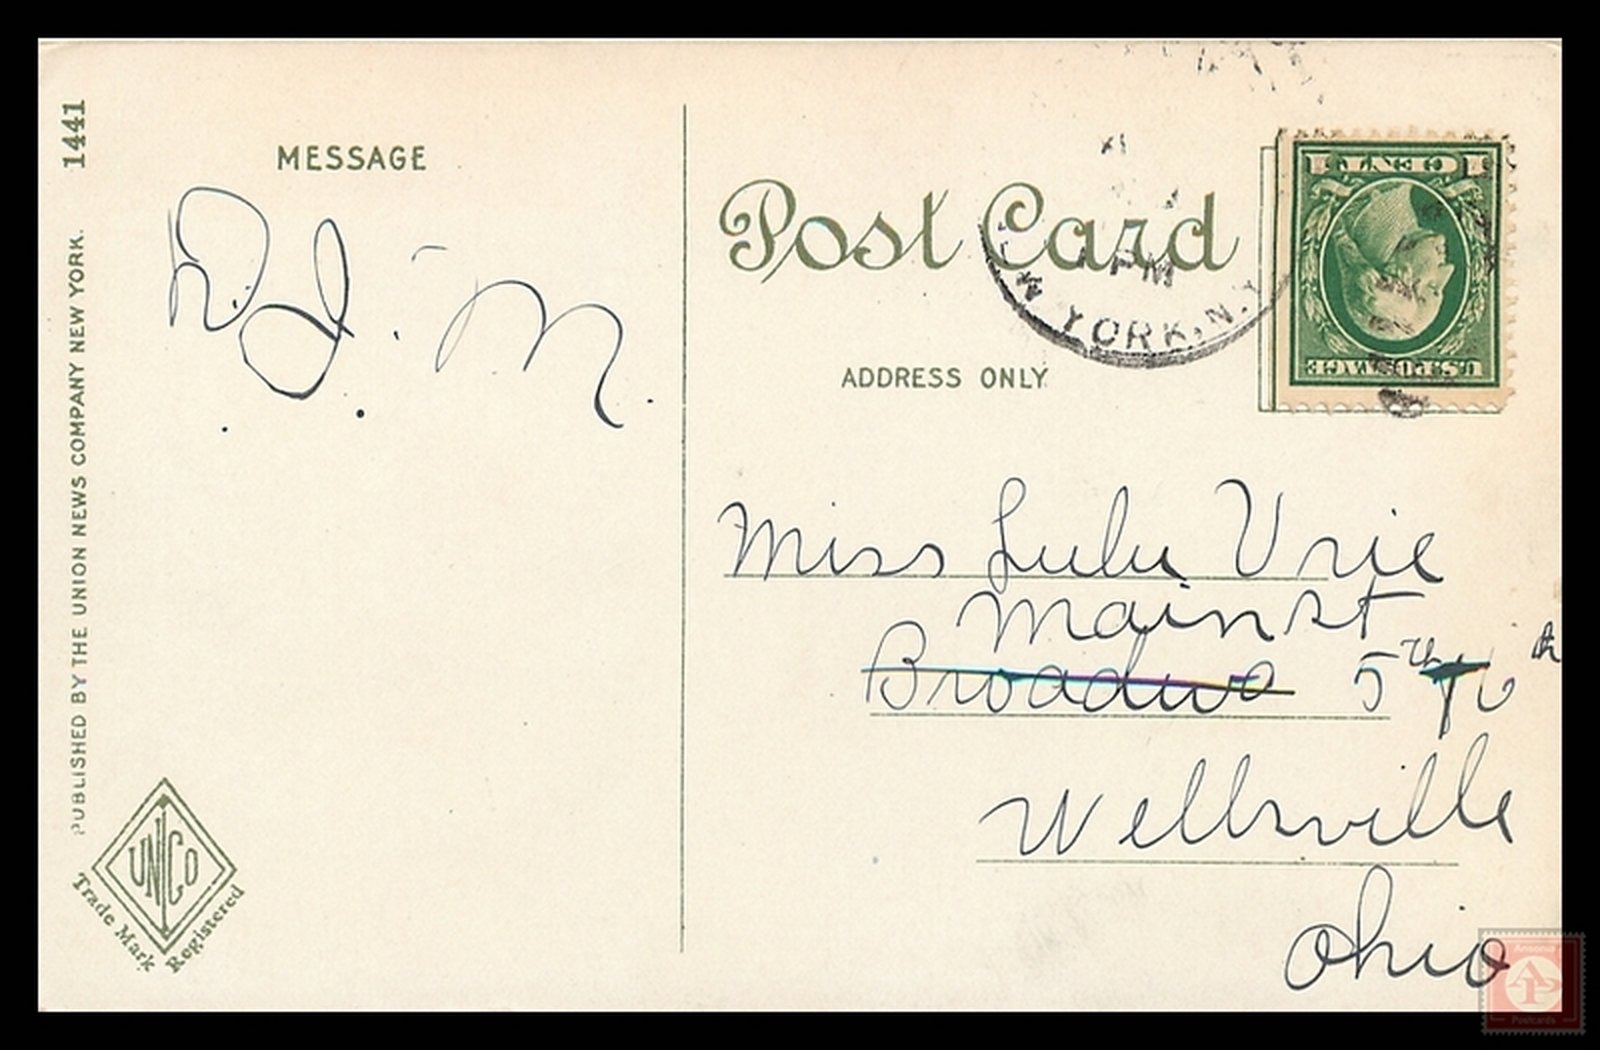 1441
PUBLISHED BY THE UNION NEWS COMPANY NEW YORK.
MESSAGE
UNCO
Trade Mark Registered
Post Card
PM
YORK, N.Y.
1 CENT 1
U.S. POSTAGE
ADDRESS ONLY
Miss Lulu Vrie
Main St
5th 6th
Wellsville
Ohio
Ansonia
AP
Postcards